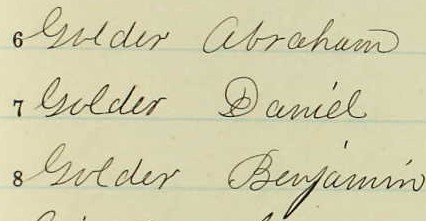 6 Golder Abraham
7 Golder Daniel
8 Golder Benjamin